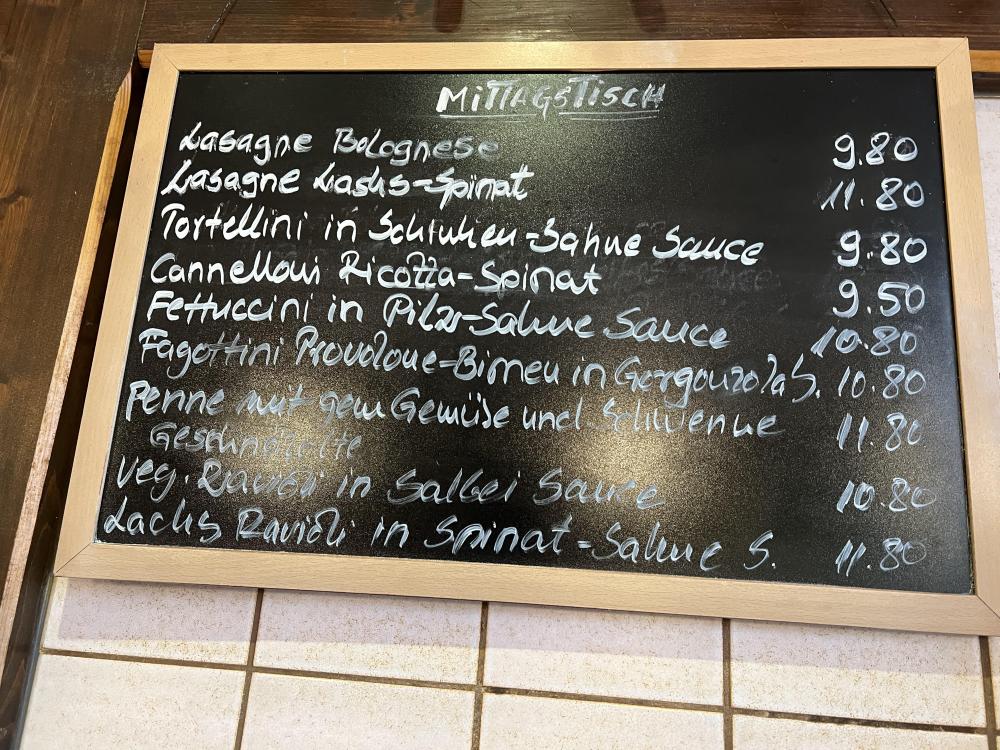 MITTAGSTISCH
Lasagne Bolognese 9.80
Lasagne Lachs-Spinat 11.80
Tortellini in Schinken-Sahne Sauce 9.80
Cannelloni Ricotta-Spinat 9.50
Fettuccini in Pilz-Sahne Sauce 10.80
Fagottini Provolone-Birnen in Gorgonzola S. 10.80
Penne mit gem Gemüse und Schweine 11.80
Geschnetzelte
Veg. Ravioli in Salbei Sauce 10.80
Lachs Ravioli in Spinat-Sahne S. 11.80